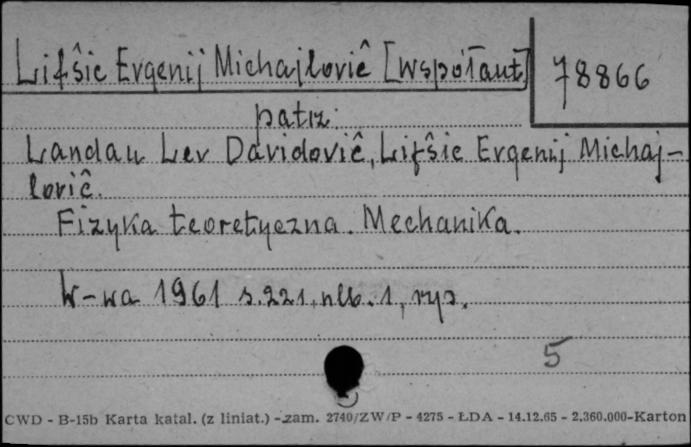 Lifŝic Evgenij Michajlovič [współaut] 78866
patrz:
Landau Lev Davidovič, Lifŝic Evgenij Michaj-
lovič.
Fizyka teoretyczna. Mechanika.
W-wa 1961 s. 221, nlb. 1, rys.
5
CWD - B-15b Karta katal. (z liniat.) - zam. 2740/ZW/P - 4275 - ŁDA - 14.12.65 - 2.360.000-Karton